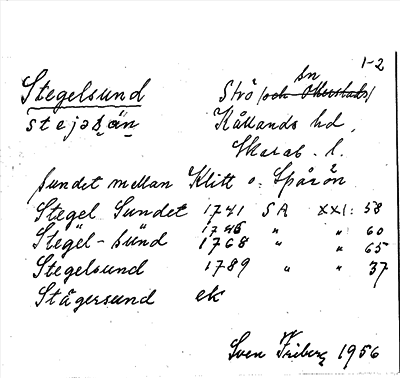 1-2
Stegelsund
Strö (och Otterstads) sn
stejəsän
Kållands hd,
Skarab. l.
Sundet mellan Klitt o. Spårön
Stegel Sundet 1741 SA XXI: 58
Stegel-sund 1746 " " 60
1768 " " 65
Stegelsund 1789 " " 37
Stägersund ek
Sven Friberg 1956